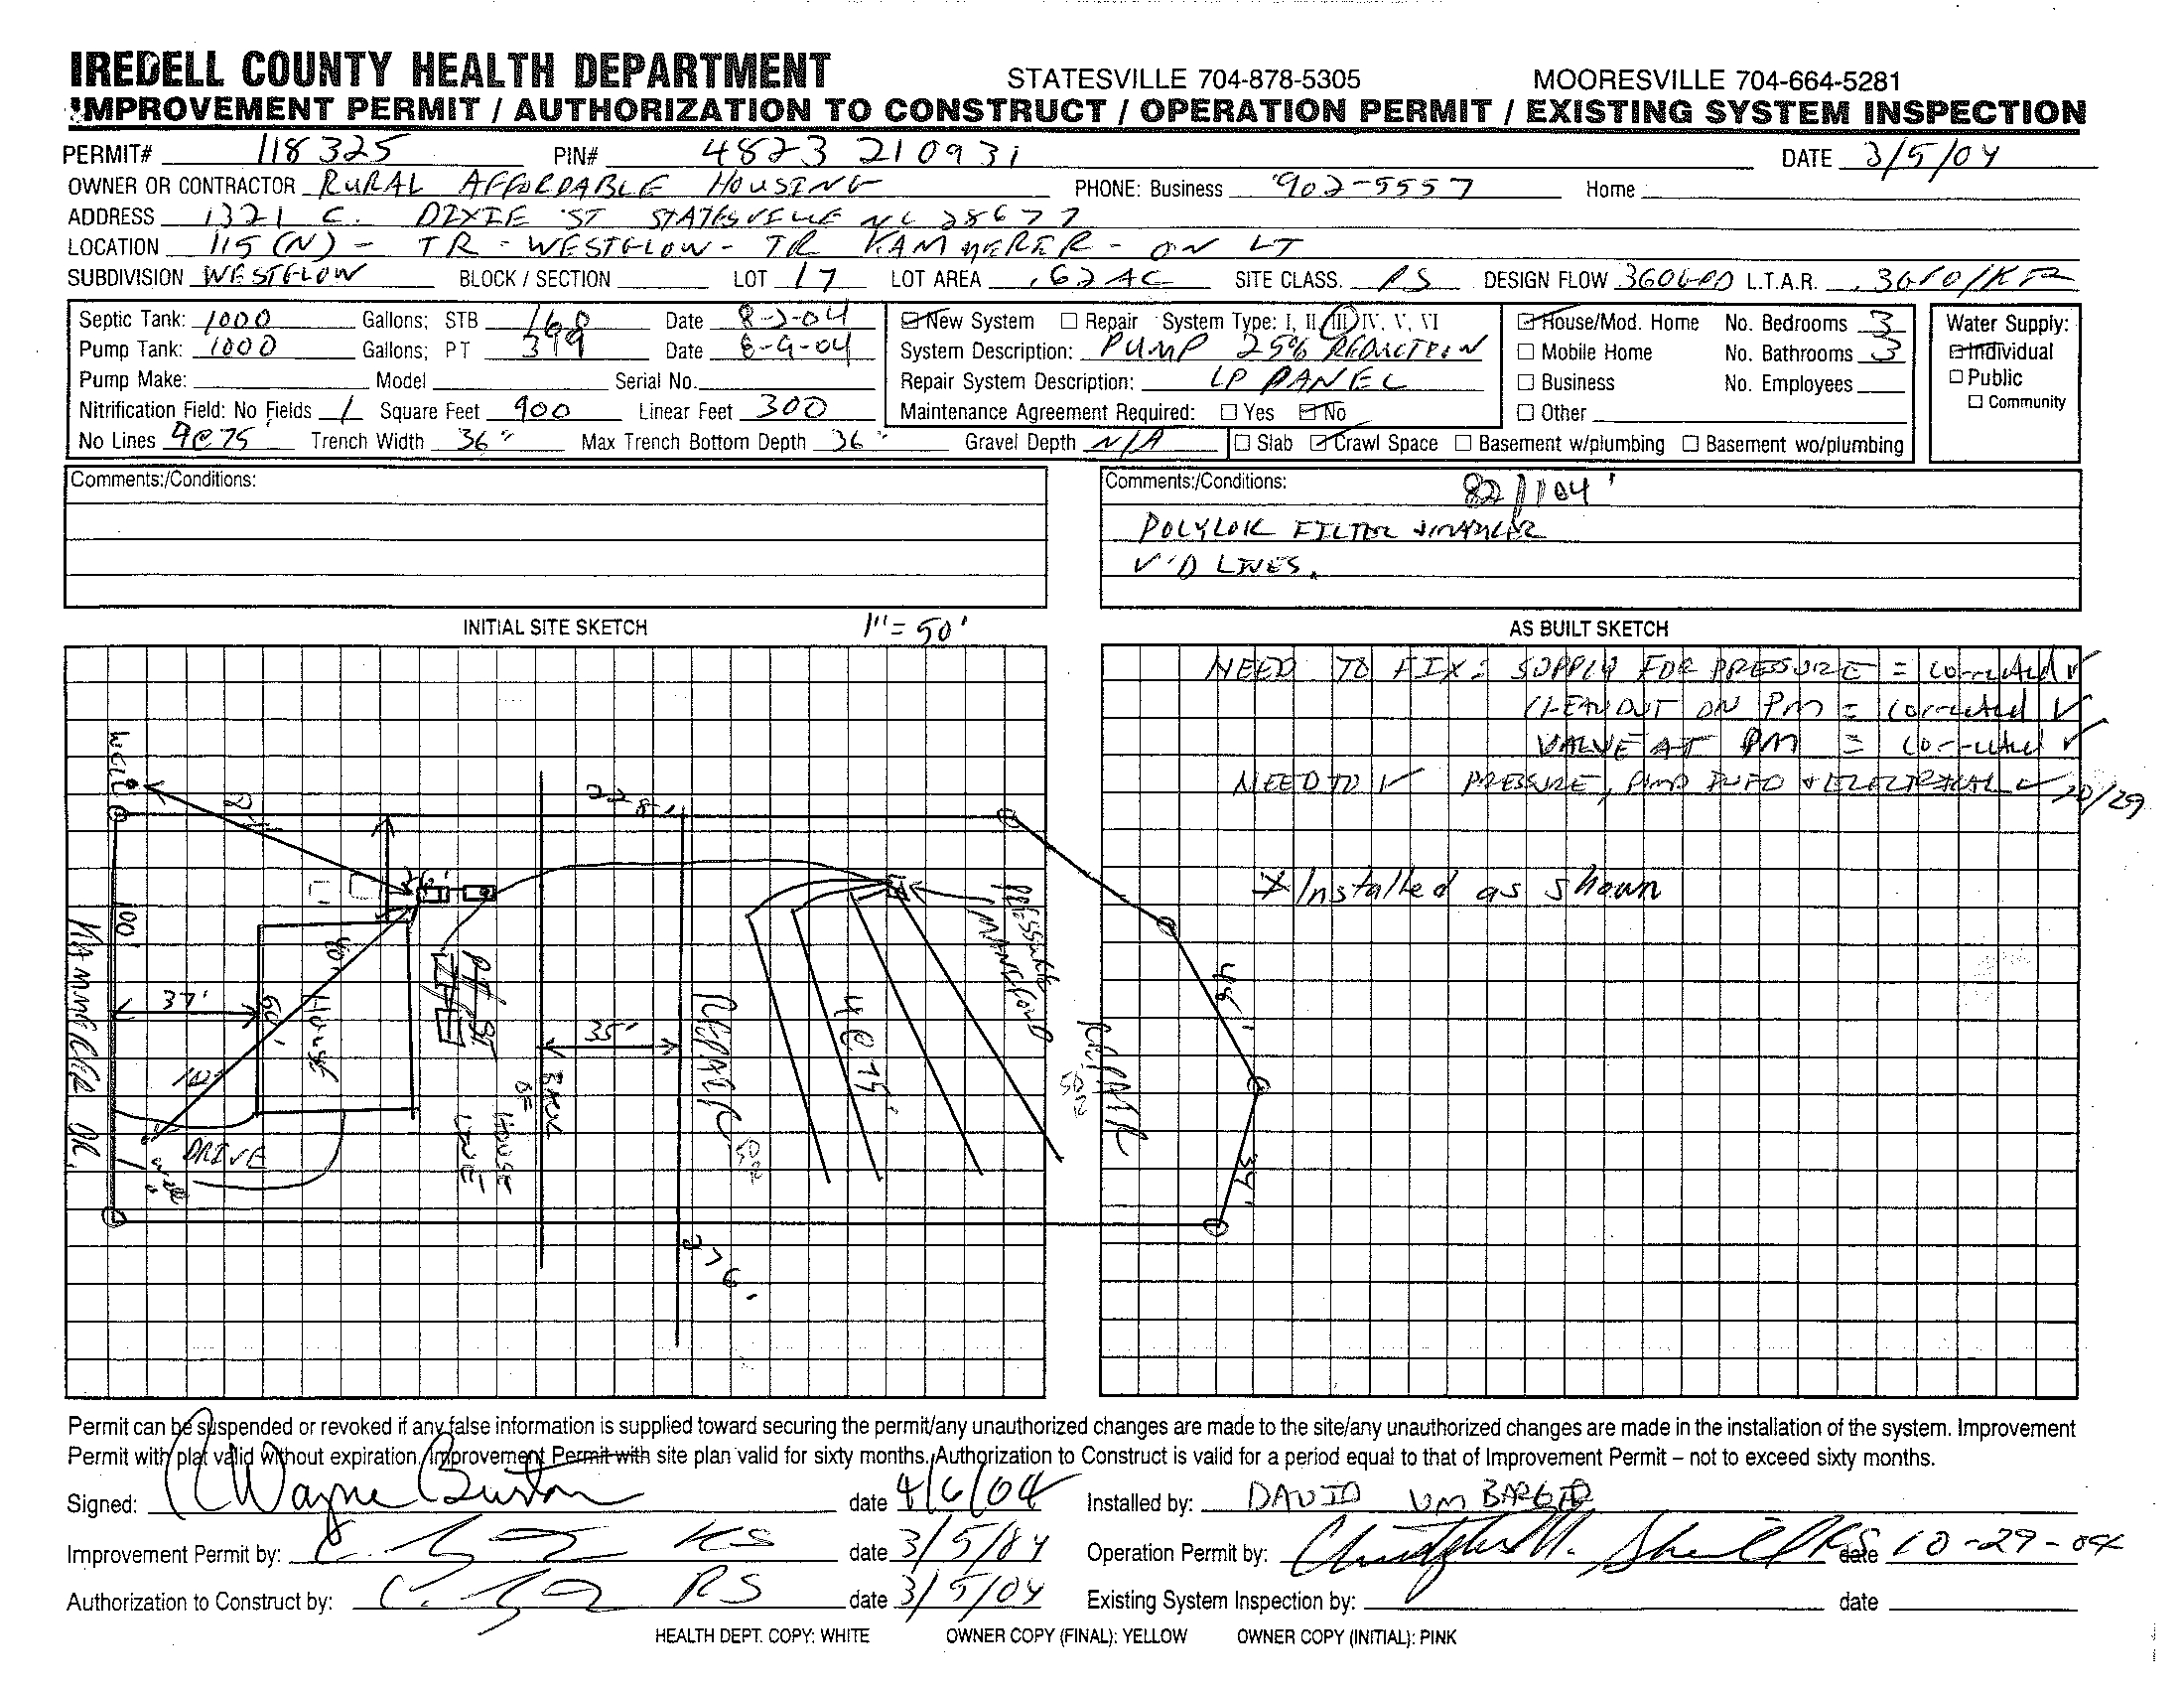 IREDELL COUNTY HEALTH DEPARTMENT STATESVILLE 704-878-5305 MOORESVILLE 704-664-5281
IMPROVEMENT PERMIT / AUTHORIZATION TO CONSTRUCT / OPERATION PERMIT / EXISTING SYSTEM INSPECTION
PERMIT# 118325 PIN# 4823 210931 DATE 3/5/04
OWNER OR CONTRACTOR RURAL AFFORDABLE HOUSING PHONE: Business 902-5557 Home
ADDRESS 1321 C. DIXIE ST STATESVILLE NC 28677
LOCATION 115 (N) - TR - WESTGLOW - TR KAMMERER - ON LT
SUBDIVISION WESTGLOW BLOCK / SECTION LOT 17 LOT AREA .62 AC SITE CLASS. PS DESIGN FLOW 360GPD L.T.A.R.
Septic Tank: 1000 Gallons; STB 160 Date 8-2-04 New System Repair System Type: I, II, III, IV, V, VI House/Mod. Home No. Bedrooms 3 Water Supply:
Pump Tank: 1000 Gallons; PT 399 Date 8-9-04 System Description: PUMP 25% REDUCTION Mobile Home No. Bathrooms 3 Individual
Pump Make: Model Serial No. Repair System Description: LP PANEL Business No. Employees Public
Nitrification Field: No Fields 1 Square Feet 900 Linear Feet 300 Maintenance Agreement Required: Yes No Other Community
No Lines 4@75 Trench Width 36" Max Trench Bottom Depth 36" Gravel Depth N/A Slab Crawl Space Basement w/plumbing Basement wo/plumbing
Comments:/Conditions: Comments:/Conditions:
POLYLOK FILTER
V'D LINES.
INITIAL SITE SKETCH 1"=50' AS BUILT SKETCH
NEED TO FIX: SUPPLY FOR PRESSURE = corrected ✓
CLEANOUT ON PM = corrected ✓
VALVE AT PM = corrected ✓
NEED TO ✓ PRESSURE, PUMP INFO + ELECTRICAL ✓ 10/29
WELL
228'
* Installed as shown
100'
PRESSURE MANIFOLD
KAMMERER DR.
37'
60'
HOUSE
35'
REPAIR
4@75'
REPAIR
46'
BACK OF HOUSE LINE
DRIVE
34'
276'
Permit can be suspended or revoked if any false information is supplied toward securing the permit/any unauthorized changes are made to the site/any unauthorized changes are made in the installation of the system. Improvement
Permit with plat valid without expiration. Improvement Permit with site plan valid for sixty months. Authorization to Construct is valid for a period equal to that of Improvement Permit – not to exceed sixty months.
Signed: Wayne Burton date 4/6/04 Installed by: DAVID UMBARGER
Improvement Permit by: RS date 3/5/04 Operation Permit by: date 10-29-04
Authorization to Construct by: RS date 3/5/04 Existing System Inspection by: date
HEALTH DEPT. COPY: WHITE OWNER COPY (FINAL): YELLOW OWNER COPY (INITIAL): PINK